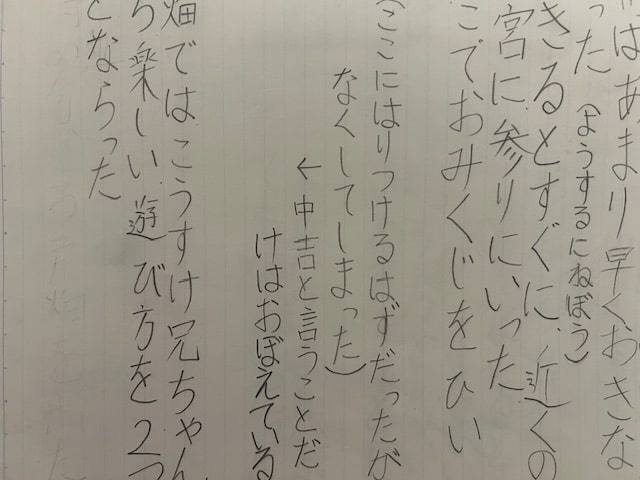 はあまり早くおきな
った(ようするにねぼう)
きるとすぐに、近くの
宮に参りにいった
こでおみくじをひい
(ここにはりつけるはずだったが
なくしてしまった)
←中吉と言うことだ
けはおぼえている
畑ではこうすけ兄ちゃん
ら楽しい遊び方を2つ
とならった